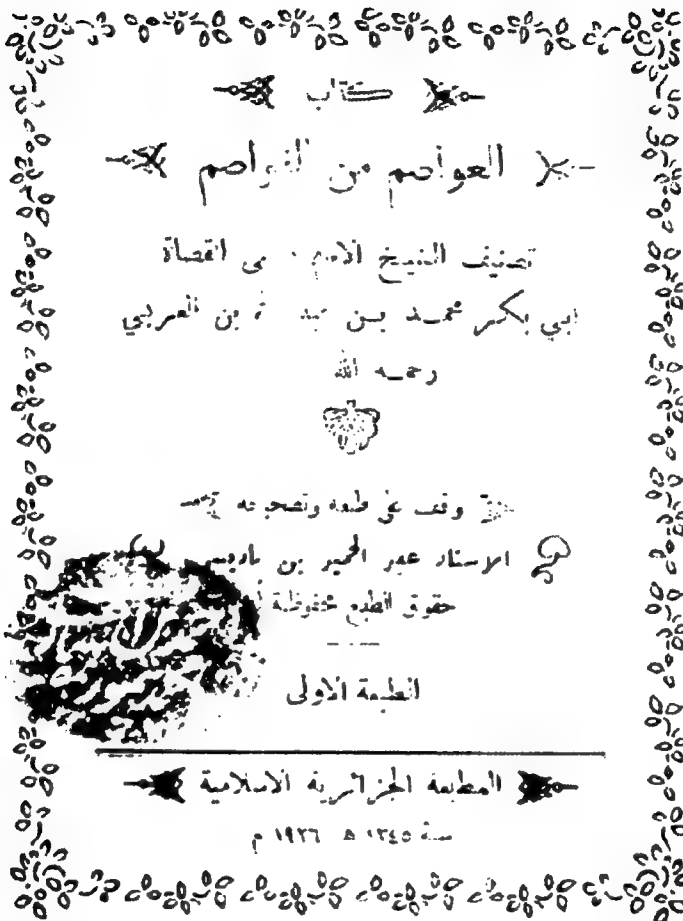 كتاب
العواصم من القواصم
تصنيف الشيخ الامام قاضي القضاة
ابي بكر محمد بن عبد الله بن العربي
رحمه الله
وقف على طبعه وتصحيحه
الاستاذ عبد الحميد بن باديس
حقوق الطبع محفوظة
الطبعة الاولى
المطبعة الجزائرية الاسلامية
سنة ١٣٤٥ ه ١٩٢٦ م